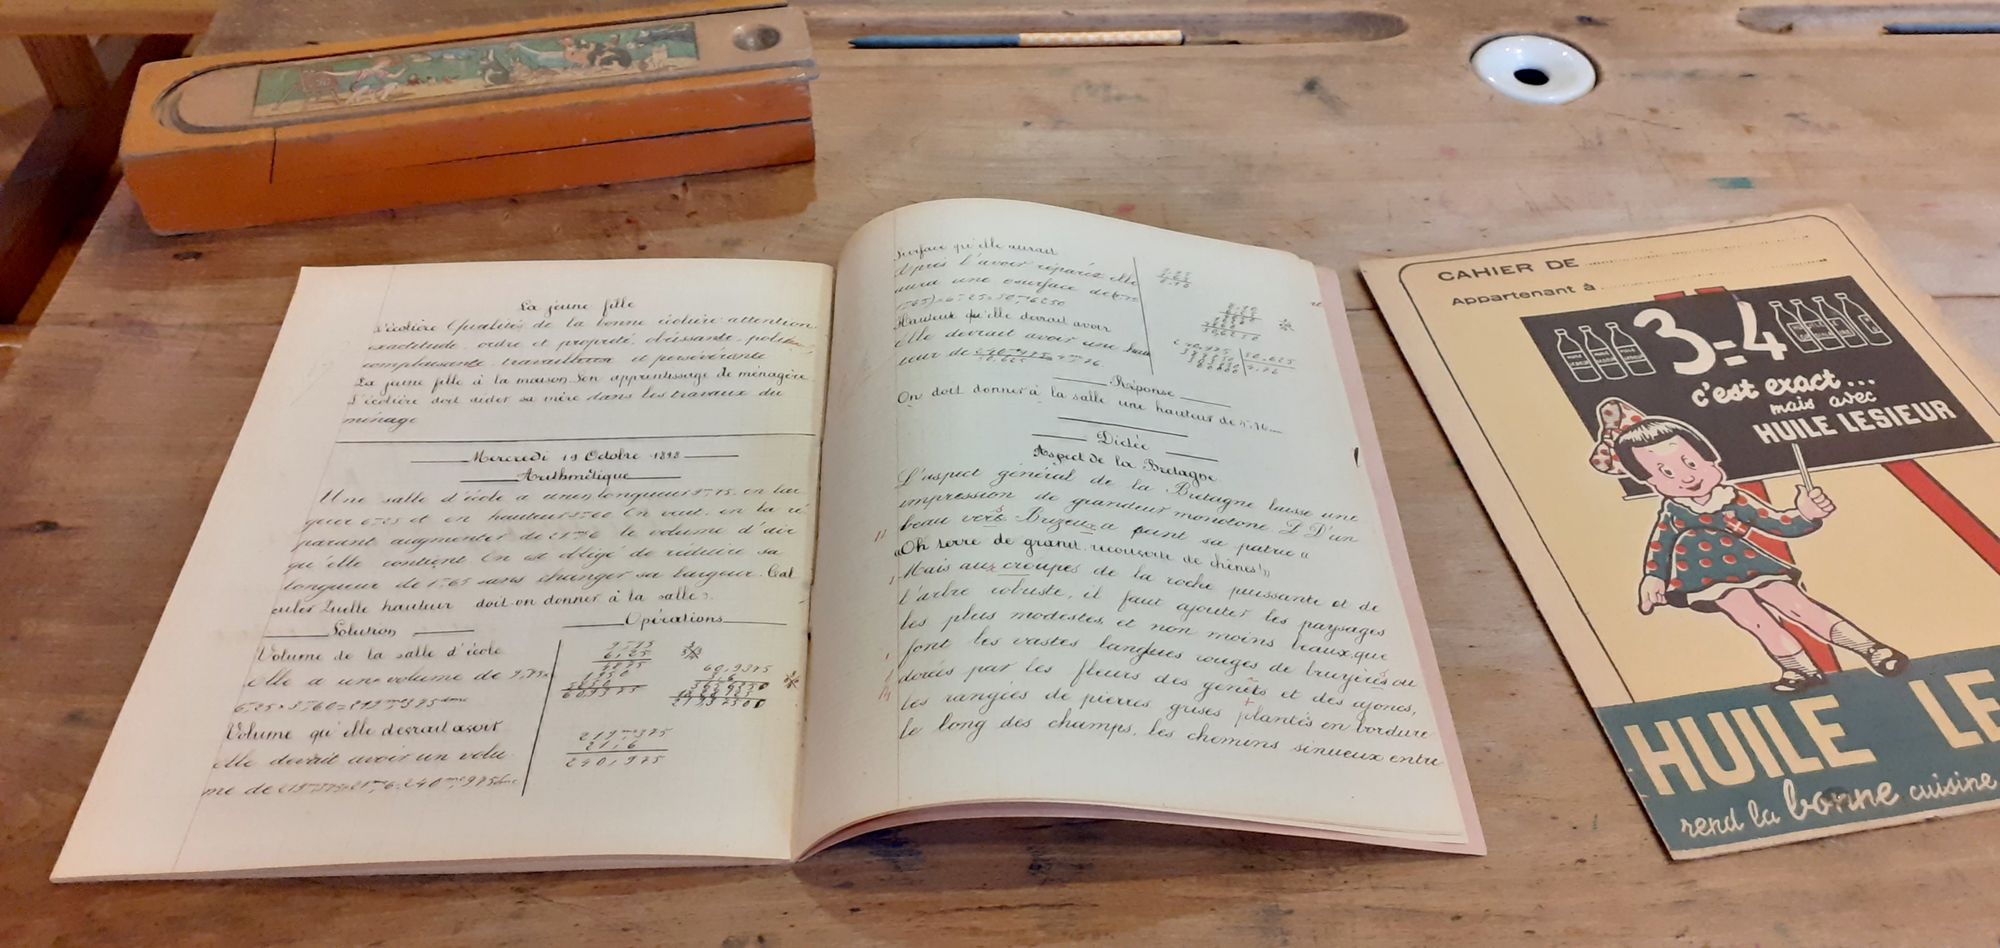 La jeune fille
L'écolière Qualités de la bonne écolière: attention
exactitude, ordre et propreté, obéissante, polie
complaisante, travailleuse et persévérante
La jeune fille à la maison. Son apprentissage de ménagère.
L'écolière doit aider sa mère dans les travaux du
ménage
Mercredi 19 Octobre 1898
Arithmétique
Une salle d'école a une longueur 9m75, en lar
geur 6m25 et en hauteur 3m60 On veut, en la ré
parant augmenter de le volume d'air
qu'elle contient On est obligé de réduire sa
longueur de 1m65 sans changer sa largeur. Cal
culer Quelle hauteur doit-on donner à la salle?
Solution
Volume de la salle d'école
elle a une volume de 9,75x
6m25 x 3m60 = 219m375
Volume qu'elle devrait avoir
elle devrait avoir un volu
me de
Opérations
9,75
6,25
4875
1950
5850
60,9375
60,9375
3,6
3656250
1828125
219,37500
219m375
21,6
240,975
Surface qu'elle aurait
Après l'avoir réparée elle
aura une surface de
Hauteur qu'elle devrait avoir
elle devrait avoir une hau
teur de
50,625
4,76
Réponse
On doit donner à la salle une hauteur de 4m,76
Dictée
Aspect de la Bretagne
L'aspect général de la Bretagne laisse une
impression de grandeur monotone. D D'un
beau vers Brizeux a peint sa patrie "
"Oh terre de granit, recouverte de chênes!"
Mais aux croupes de la roche puissante et de
l'arbre robuste, il faut ajouter les paysages
les plus modestes, et non moins beaux, que
font les vastes langues rouges de bruyères ou
dorées par les fleurs des genêts et des ajoncs,
les rangées de pierres grises plantées en bordure
le long des champs, les chemins sinueux entre
CAHIER DE
Appartenant à
3=4
c'est exact...
mais avec
HUILE LESIEUR
HUILE LE
rend la bonne cuisine